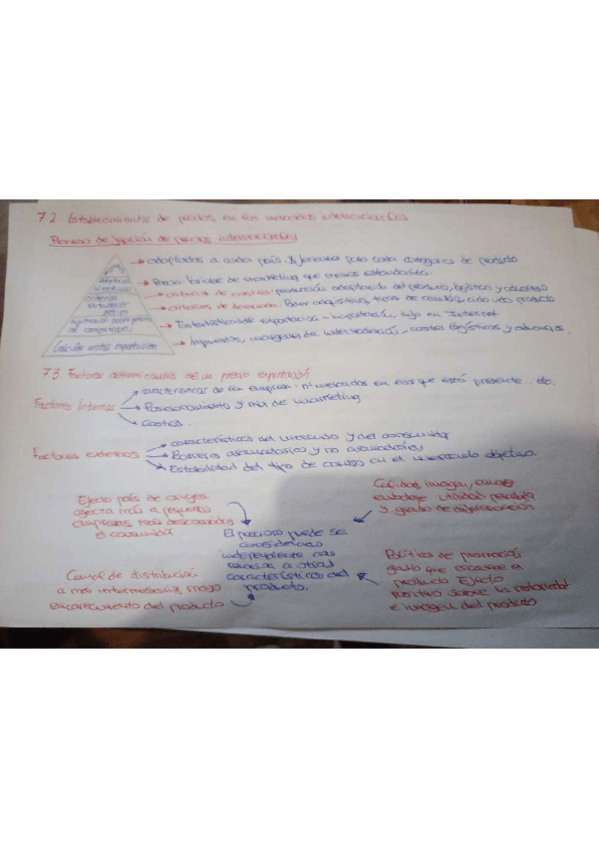 7.2 Establecimiento de precios en los mercados internacionales
Proceso de fijación de precios internacionales
adaptados a cada país. Y fórmulas para cada categoría de producto
Precio función de marketing que menos estandariza
criterios de costes: producción adaptación del producto, logístico y
criterios de demanda: Poder adquisitivo, tipos de cambio, ciclo vida producto
Estadísticas de exportación - importación, bajo en Internet
Impuestos, márgenes de intermediación, costes logísticos y aduaneros.
criterios
Calcular costes exportación
7.3. Factores determinantes de un precio exportación
Factores Internos
características de la empresa: nº mercados en los que está presente.. etc.
Posicionamiento y mix de Marketing
Costes.
Factores externos
características del mercado y del consumidor
Barreras arancelarias y no arancelarias
Estabilidad del tipo de cambio en el mercado objetivo
Efecto país de origen
afecta más a pequeñas
empresas más desconocidas
el consumidor
Calidad, imagen,
embalaje utilidad percibida
y grado de diferenciación
El precio no puede ser
considerado
independiente con
relación a otras
características del
producto.
Canal de distribución
a más intermediarios mayor
encarecimiento del producto
Política de promoción
gasto que encarece el
producto Efecto
positivo sobre la notoriedad
e imagen del producto